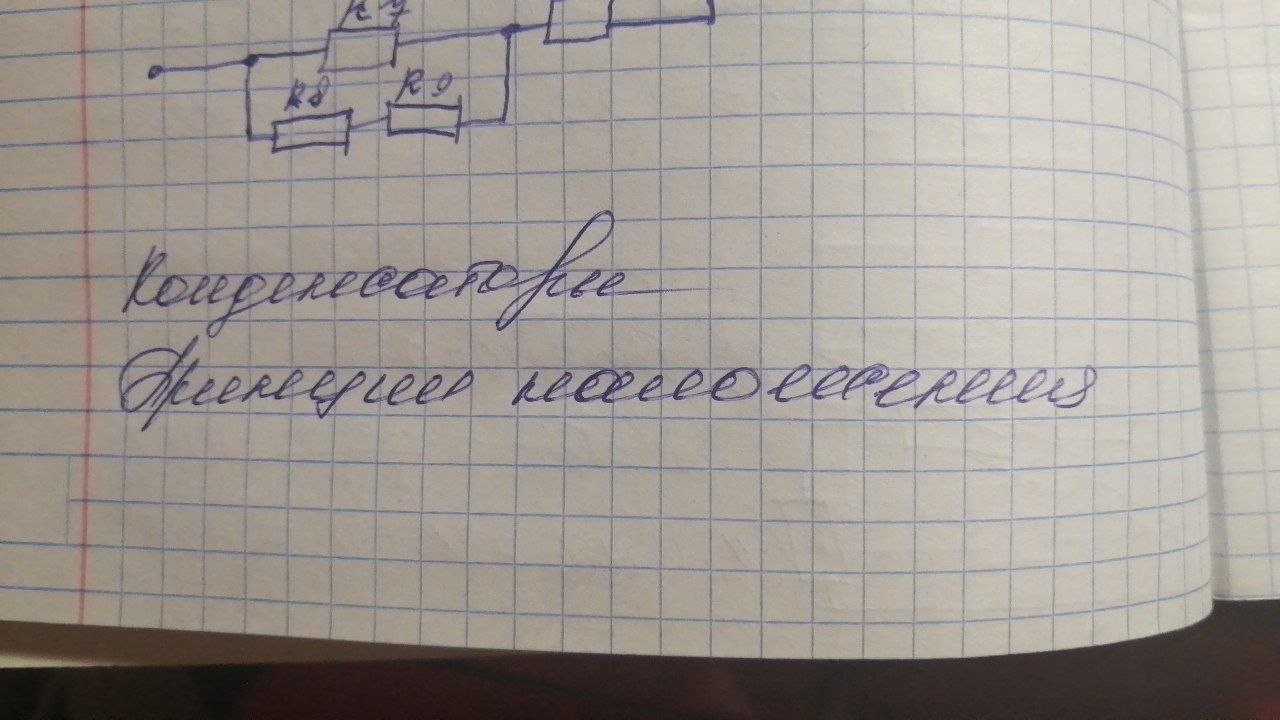 R7
R8 R9
Конденсаторы
Принцип наложения